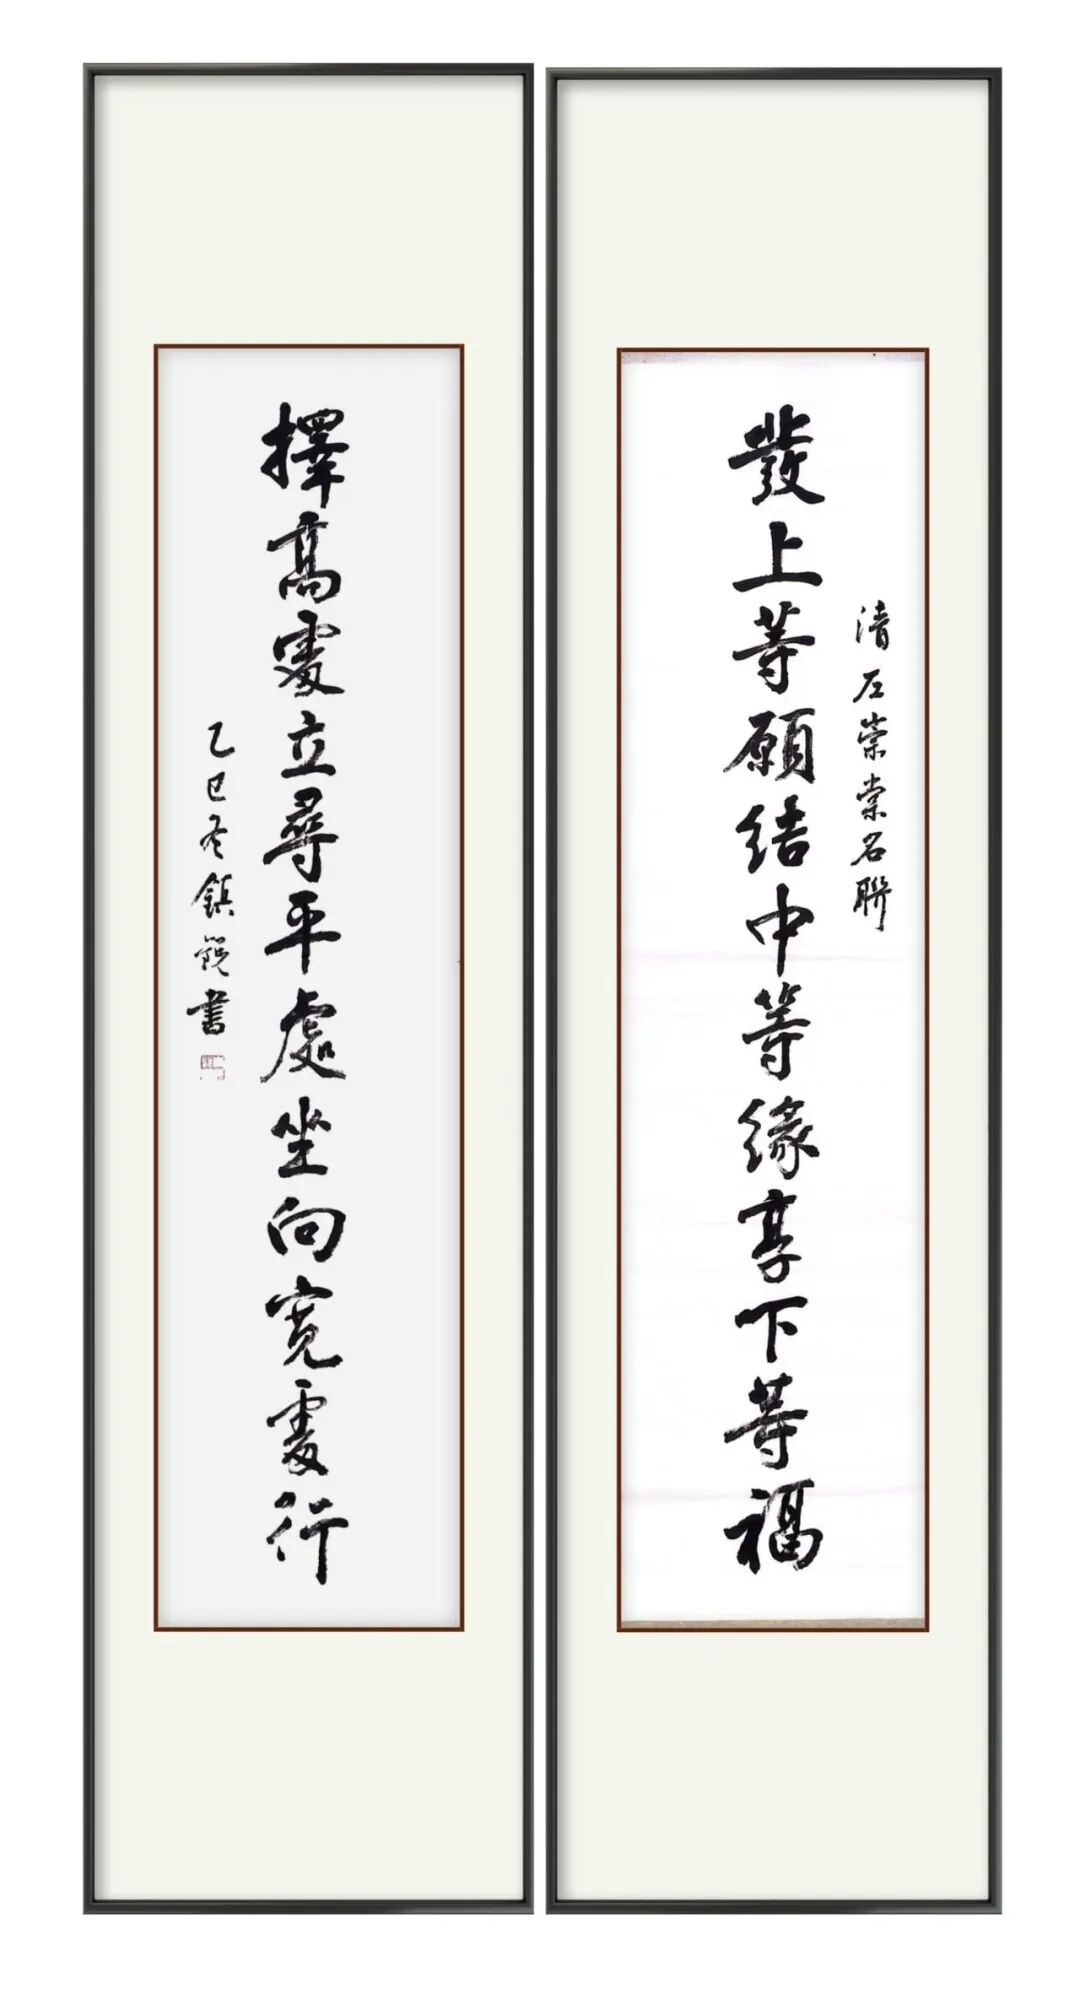 清左崇棠名聯
發上等願結中等緣享下等福
擇高處立尋平處坐向寬處行
乙巳冬鎮銳書